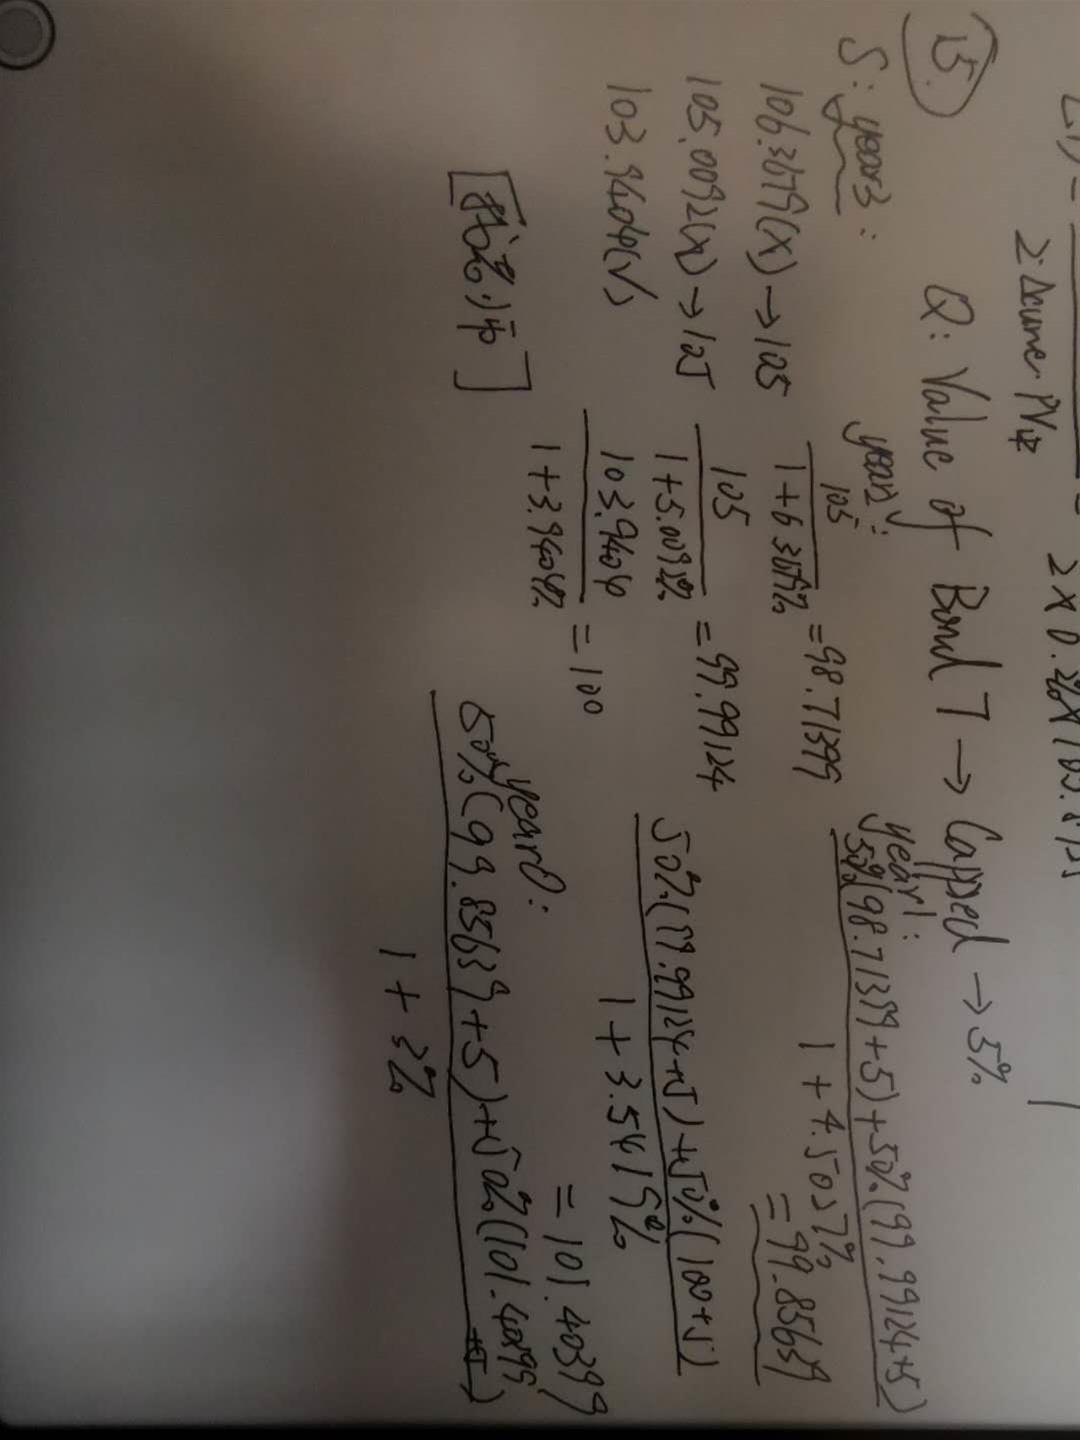 2. Acume. PV
2 x 0.
15.
Q: Value of Bond T → Capped → 5%
S: year3:
106.3679(x) → 105
105.0092(x) → 105
103.9404(√)
year2:
105
1+6.3679%
= 98.71399
105
1+5.0092%
= 99.99124
103.9404
1+3.9404%
= 100
year1:
50%(98.71399+5)+50%(99.99124+5)
1 + 4.5037%
= 99.85639
50%(99.99124+5)+50%(100+5)
1 + 3.5419%
= 101.40399
year0:
50%(99.85639+5)+50%(101.40399
+5)
1 + 3%